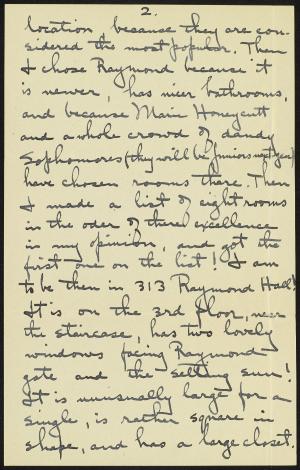 2.
location because they are con-
sidered the most popular. Then
I chose Raymond because it
is newer, has nicer bathrooms,
and because Marie Honeycutt
and a whole crowd of dandy
Sophomores (they will be Juniors next year)
have chosen rooms there. Then
I made a list of eight rooms
in the oder of their excellence
in my opinion, and got the
first one on the list! I am
to be then in 313 Raymond Hall!
It is on the 3rd floor, near
the staircase, has two lovely
windows facing Raymond
gate and the setting sun!
It is unusually large for a
single, is rather square in
shape, and has a large closet.